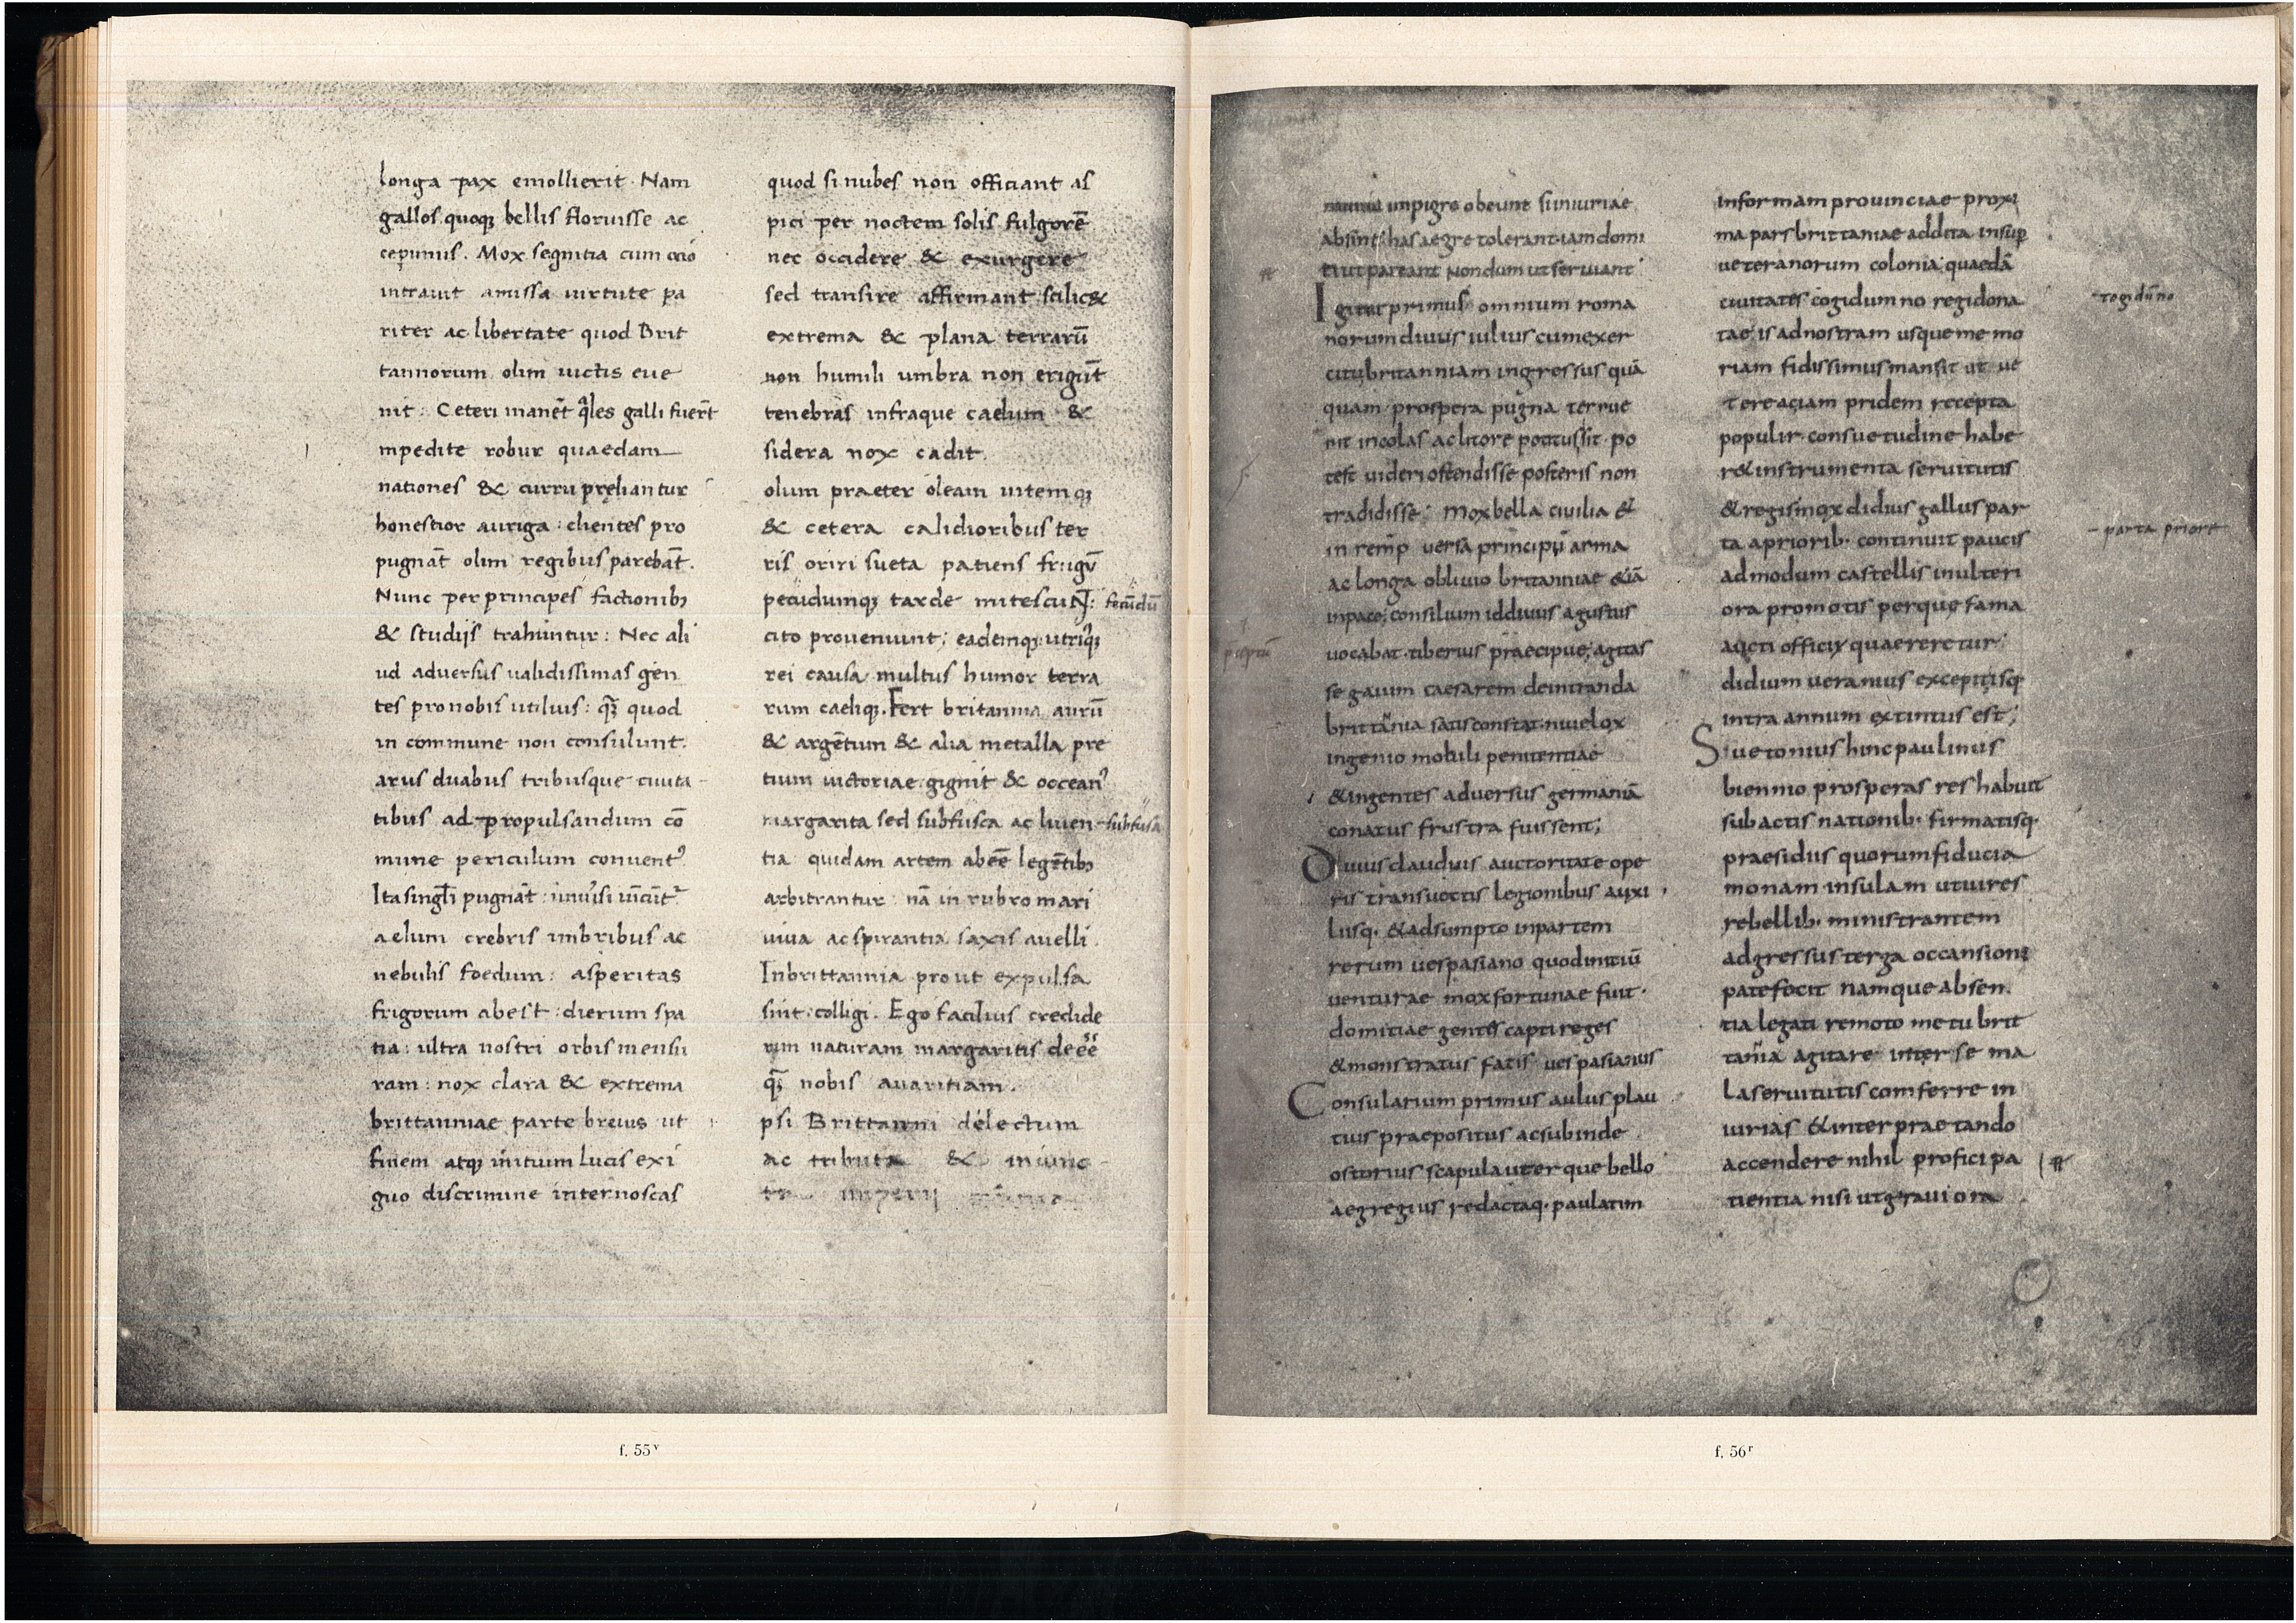 longa pax emollierit. Nam
gallos quoq; bellis floruisse ac
cepimus. Mox segnitia cum ocio
intravit amissa uirtute pa
riter ac libertate quod Brit
tannorum olim uictis eue
nit: Ceteri manēt q̄les galli fuer̄t
mpedite robur quaedam
nationes & curru pręliantur
honestior auriga: clientes pro
pugnāt olim regibus parebāt.
Nunc per principes factionib;
& studijs trahuntur: Nec ali
ud aduersus ualidissimas gen
tes pro nobis utilius: q̄; quod
in commune non consulunt.
arus duabus tribusque ciuita
tibus ad propulsandum cō
mune periculum conuent᾽
Ita singl̄i pugnāt: uniu͛si uīcūt᷑
aelum crebris imbribus ac
nebulis foedum: asperitas
frigorum abest: dierum spa
tia: ultra nostri orbis mensu
ram: nox clara & extrema
brittanniae parte breuis ut
finem atq; initium lucis exi
guo discrimine internoscas
quod si nubes non officiant as
pici per noctem solis fulgorē
nec occidere & exurgere
sed transire affirmant: scilic&
extrema & plana terrarū
non humili umbra non erigūt
tenebras infraque caelum &
sidera nox cadit.
olum praeter oleam uitemq;
& cetera calidioribus ter
ris oriri sueta patiens frugū
pecudumq; tarde mitescuNT: fecūdū
cito proueniunt; eademq; utriq;
rei causa multus humor terra
rum caeliq;. Fert britannia aurū
& argētum & alia metalla pre
tium uictoriae: gignit & occean᾽
margarita sed subfusca ac liuen subfusa
tia quidam artem abeē̄ legētib;
arbitrantur: nā in rubro mari
uiua ac spirantia saxis auelli.
Inbrittannia prout expulsa
sint: colligi. Ego facilius credide
rim naturam margaritis deēē
q̄; nobis auaritiam.
psi Brittanni delectum
ac tributa & iniunc
ta imperij munia
munia impigre obeunt si iniuriae
absint: has aegre tolerant iam domi
ti ut pareant nondum ut seruiant
Igitur primus omnium roma
norum diuus iulius cum exer
citu britanniam ingressus quā
quam prospera pugna terrue
rit incolas ac litore potitus sit. po
test uideri ostendisse posteris non
tradidisse: Mox bella ciuilia &
in remp̄ uersa principū arma
ac longa obliuio britanniae &iā
in pace; consilium id diuus agustus
uocabat. tiberius praecipue; agitas
se gaium caesarem de intranda
brittānia satis constat. ni uelox
ingenio mobili penitentiae
& ingentes aduersus germaniā
conatus frustra fuissent;
Diuus claudius auctoritate ope
ris transuectis legionibus auxi
liisq. & adsumpto in partem
rerum uespasiano quod initiū
uenturae mox fortunae fuit.
domitiae gentes capti reges
& monstratus fatis uespasianus
Consularium primus aulus plau
tius praepositus ac subinde
ostorius scapula uterque bello
aegregius redactaq. paulatim
in formam prouinciae proxi
ma pars brittaniae addita insup
ueteranorum colonia; quaedā
ciuitates cogidumno regi dona
togidūno
tae; is ad nostram usque me mo
riam fidissimus mansit ut ue
tere ac iam pridem recepta
populi r. consuetudine habe
r& instrumenta seruitutis
& regis mox didius gallus par
ta a priorib. continuit paucis
parta priore
admodum castellis in ulteri
ora promotis per que fama
aucti officij quaereretur;
didium ueranius excepit isq
intra annum extintus est;
Suetonius hinc paulinus
biennio prosperas res habuit
subactis nationib. firmatisq.
praesidiis quorum fiducia
monam insulam ut uires
rebellib. ministrantem
adgressus terga occansioni
patefecit namque absen.
tia legati remoto metu brit
tania agitare inter se ma
la seruitutis comferre in
iurias & inter prae tando
accendere nihil profici pa
tientia nisi ut grauiora
f. 55v
f. 56r